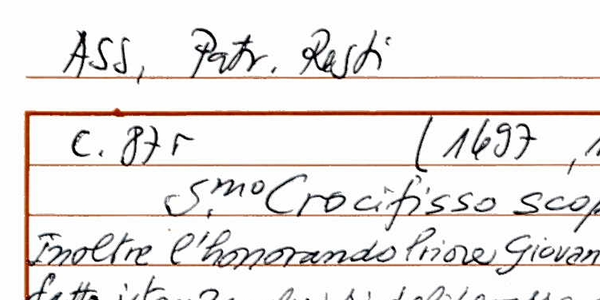 ASS, Patr. Resti
c. 87r (1697,
S.mo Crocifisso scop
Inoltre l'honorando Priore Giovan
fatto